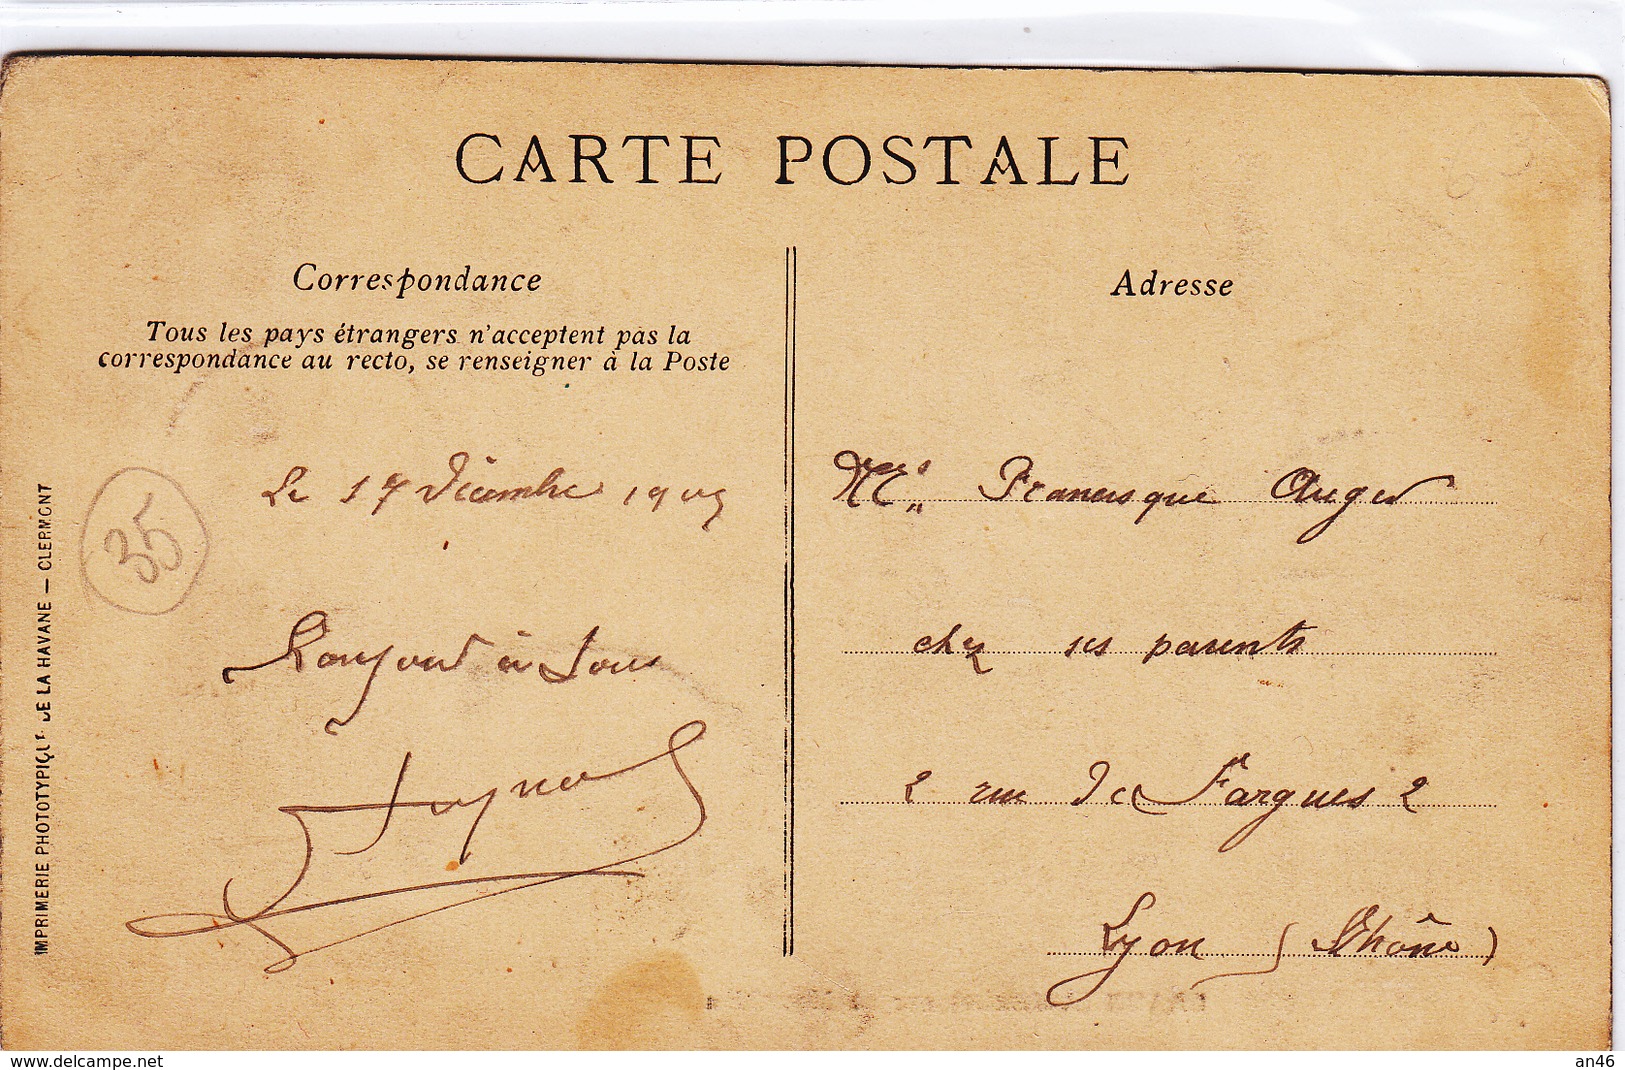 CARTE POSTALE
Correspondance
Tous les pays étrangers n'acceptent pas la
correspondance au recto, se renseigner à la Poste
Le 17 Décembre 190
35
Bonjour à Tous
IMPRIMERIE PHOTOTYPIQUE DE LA HAVANE — CLERMONT
Adresse
Francisque Auger
chez ses parents
2 rue des Fargues 2
Lyon (Rhône)
www.delcampe.net
an46